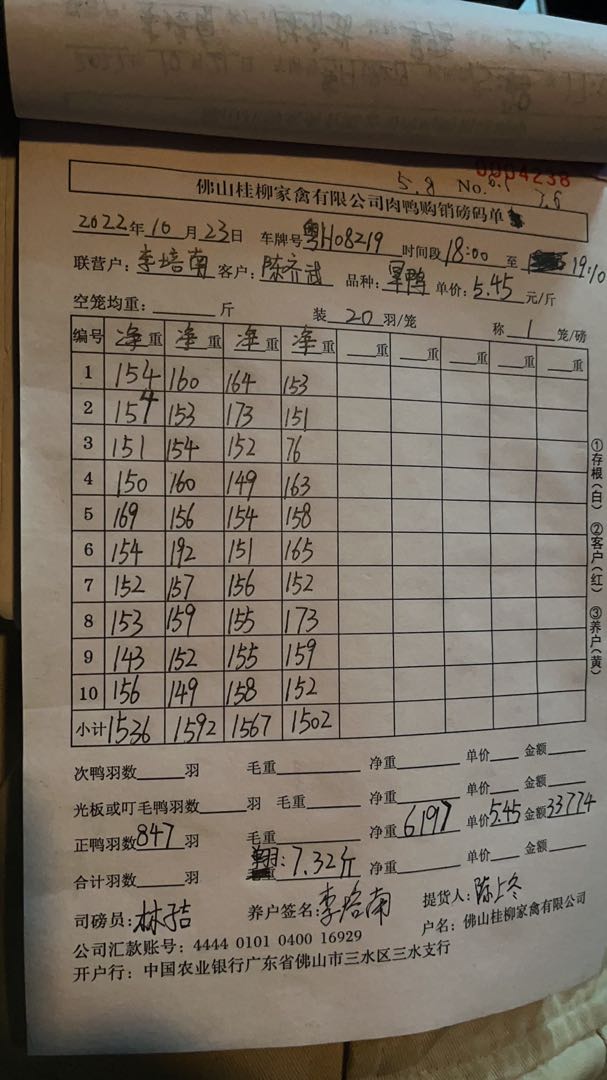 5.8 No. 0004238
佛山桂柳家禽有限公司肉鸭购销磅码单
2022年10月23日 车牌号粤H08219 时间段18:00至19:10
联营户:李培南 客户:陈齐武 品种:单鸭 单价:5.45元/斤
空笼均重:斤 装20羽/笼 称1笼/磅
编号 净重 净重 净重 净重 重 重 重 重 重
1 154 160 164 153
2 154 153 173 151
3 151 154 152 76
4 150 160 149 163
5 169 156 154 158
6 154 192 151 165
7 152 157 156 152
8 153 159 155 173
9 143 152 155 159
10 156 149 158 152
小计 1536 1592 1567 1502
次鸭羽数羽 毛重 净重 单价 金额
光板或叮毛鸭羽数羽 毛重 净重 单价 金额
正鸭羽数847羽 毛重 净重6197 单价5.45 金额33774
合计羽数羽 :7.32斤 净重 单价 金额
司磅员: 养户签名:李培南 提货人:
公司汇款账号:4444 0101 0400 16929 户名:佛山桂柳家禽有限公司
开户行:中国农业银行广东省佛山市三水区三水支行
①存根(白) ②客户(红) ③养户(黄)